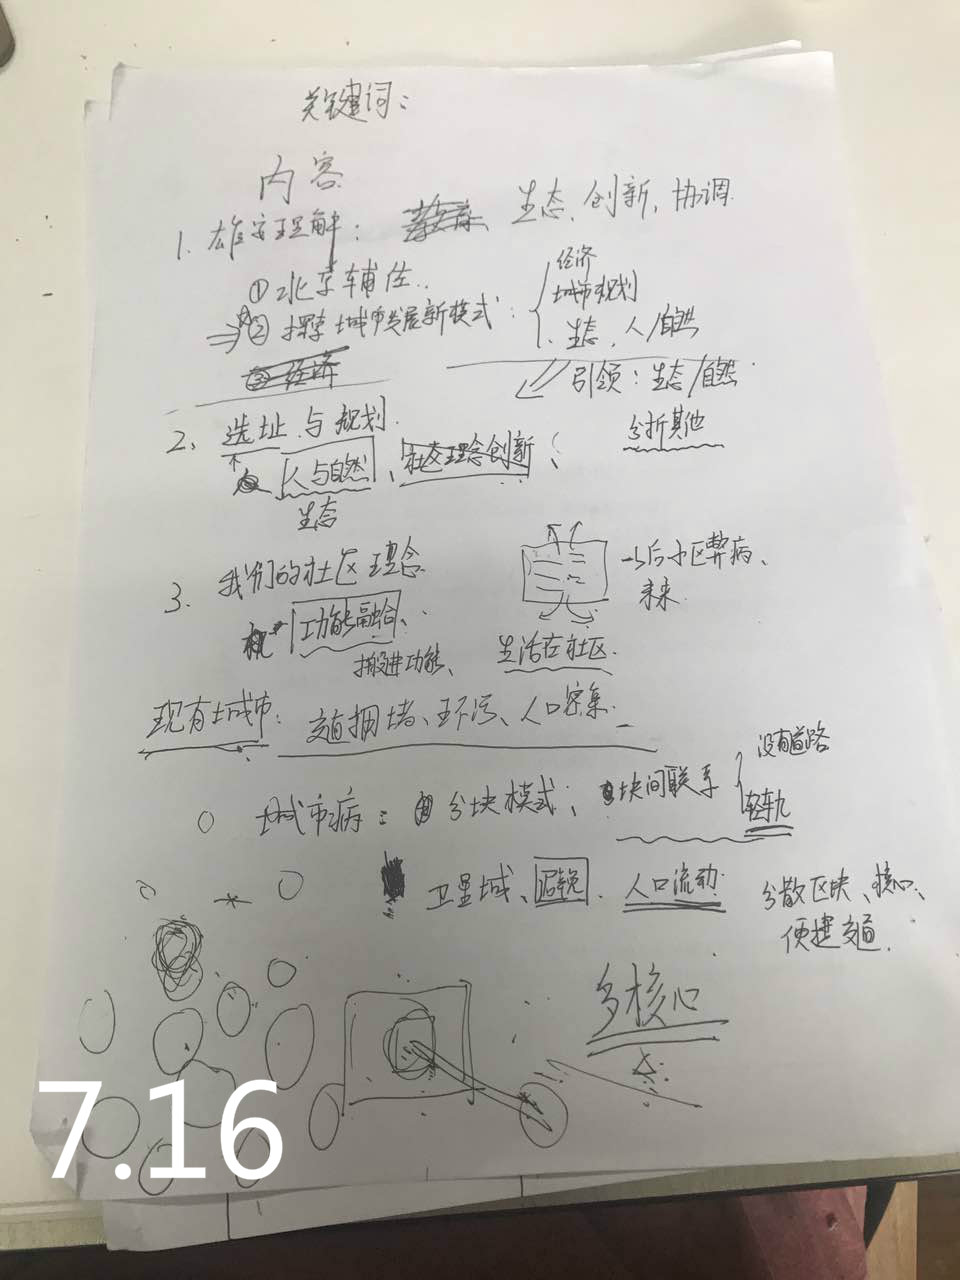 关键词：
内容
1. 雄安理解：生态、创新、协调.
①北京辅佐..
⇒②探索城市发展新模式：
经济
城市规划
生态、人/自然
引领：生态/自然
③经济
2、选址、与规划.
分析其他
人与自然、社区理念创新
生态
3、我们的社区理念
以后小区弊病、
未来.
功能融合、
搬进功能、
生活在社区.
现有城市：交通拥堵、环污、人口密集.
城市病：分块模式；块间联系
没有道路
轻轨
卫星城、避免、人口流动
分散区块、核心、
便捷交通.
多核心
7.16